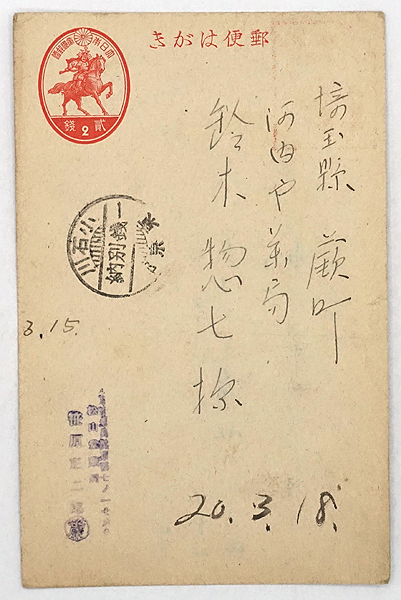 きがは便郵
大日本帝國郵便
貳錢
2
埼玉縣 蕨町
河内や薬局
鈴木惣七様
小石川
一錢別納
東京
3.15.
20. 3. 18.